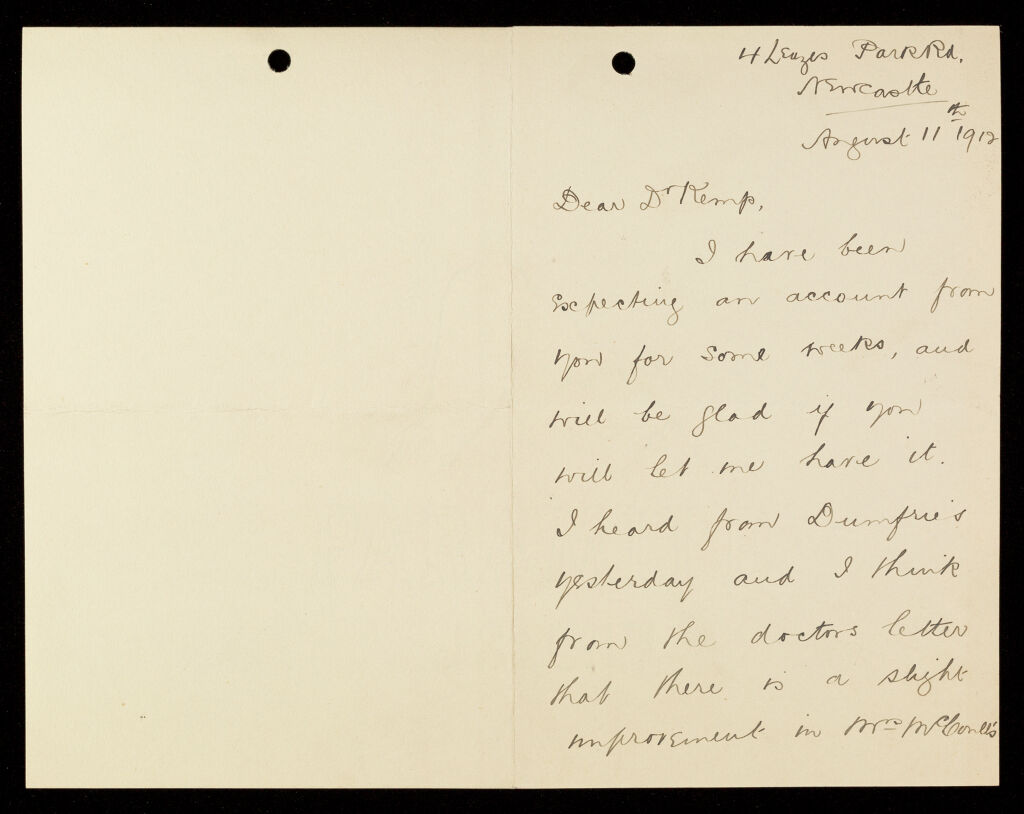 4 Leazes Park Rd.
Newcastle
August 11th 1912
Dear Dr Kemp,
I have been
expecting an account from
you for some weeks, and
will be glad if you
will let me have it.
I heard from Dumfries
yesterday and I think
from the doctors letter
that there is a slight
improvement in Mrs